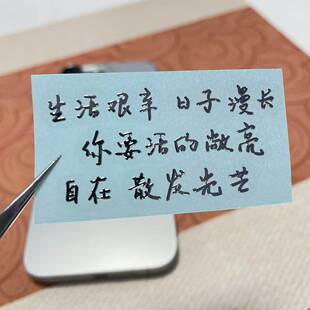 生活艰辛 日子漫长
你要活的敞亮
自在 散发光芒